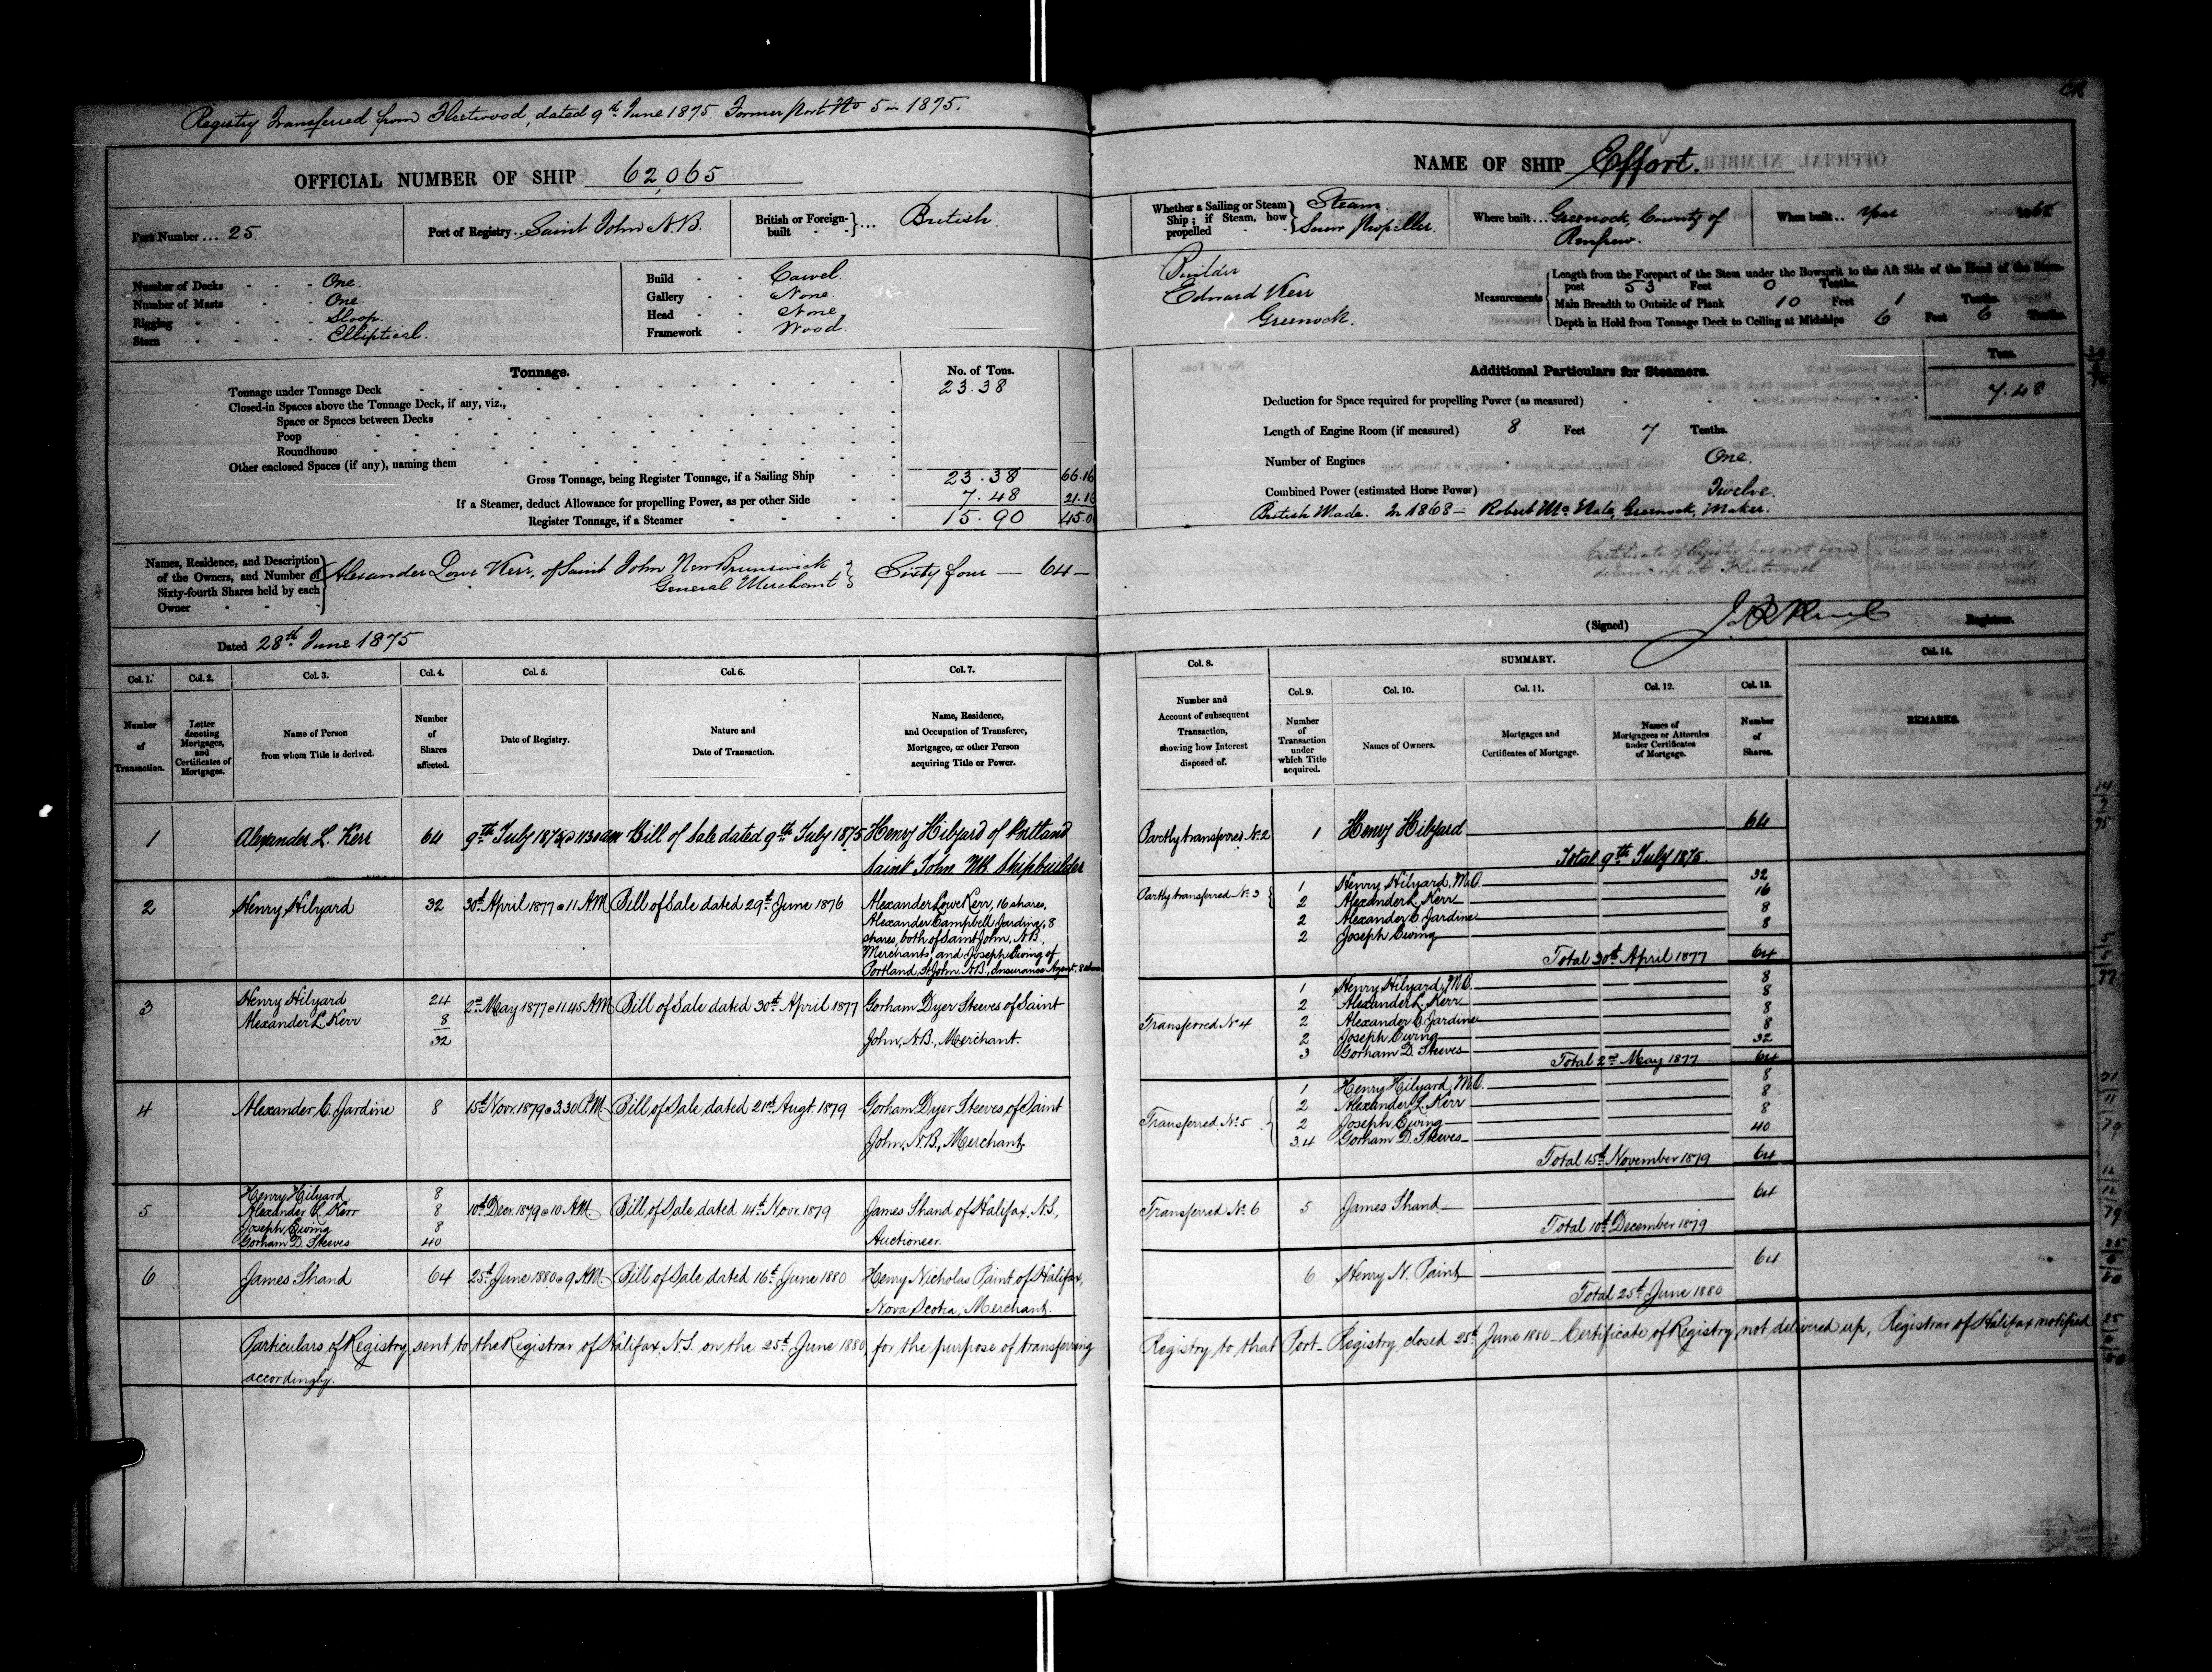 Registry Transferred from Fleetwood, dated 9th June 1875. Former Port No 5 in 1875.
OFFICIAL NUMBER OF SHIP 62,065
Port Number ... 25
Port of Registry .. Saint John N.B.
British or Foreign-built } ... British
Number of Decks One
Number of Masts One
Rigging Sloop
Stern Elliptical
Build Carvel
Gallery None
Head None
Framework Wood
Tonnage.
No. of Tons.
Tonnage under Tonnage Deck 23.38
Closed-in Spaces above the Tonnage Deck, if any, viz.,
Space or Spaces between Decks
Poop
Roundhouse
Other enclosed Spaces (if any), naming them
Gross Tonnage, being Register Tonnage, if a Sailing Ship 23.38 66.16
If a Steamer, deduct Allowance for propelling Power, as per other Side 7.48
Register Tonnage, if a Steamer 15.90
Names, Residence, and Description of the Owners, and Number of Sixty-fourth Shares held by each Owner
Alexander Lowe Kerr, of Saint John New Brunswick
General Merchant } Sixty four — 64 —
Dated 28th June 1875
NAME OF SHIP Effort.
Whether a Sailing or Steam Ship; if Steam, how propelled } Steam
Screw Propeller.
Where built... Greenock, County of
Renfrew.
When built.. Year
Builder
Edward Kerr
Greenock.
Measurements
Length from the Forepart of the Stem under the Bowsprit to the Aft Side of the Head of the Stern-
post 53 Feet 0 Tenths.
Main Breadth to Outside of Plank 10 Feet 1 Tenths.
Depth in Hold from Tonnage Deck to Ceiling at Midships 6 Feet 6 Tenths.
Additional Particulars for Steamers.
Tons.
Deduction for Space required for propelling Power (as measured) 7.48
Length of Engine Room (if measured) 8 Feet 7 Tenths.
Number of Engines One.
Combined Power (estimated Horse Power) Twelve.
British Made. In 1868 — Robert Greenock, Maker.
Certificate of Registry has not been
up at Fleetwood
(Signed) Registrar.
Col. 1. Col. 2. Col. 3. Col. 4. Col. 5. Col. 6. Col. 7.
Number of Transaction.
Letter denoting Mortgages, and Certificates of Mortgages.
Name of Person from whom Title is derived.
Number of Shares affected.
Date of Registry.
Nature and Date of Transaction.
Name, Residence, and Occupation of Transferee, Mortgagee, or other Person acquiring Title or Power.
Col. 8.
SUMMARY.
Col. 14.
Col. 9. Col. 10. Col. 11. Col. 12. Col. 13.
Number and Account of subsequent Transaction, showing how Interest disposed of.
Number of Transaction under which Title acquired.
Names of Owners.
Mortgages and Certificates of Mortgage.
Names of Mortgagees or Attornies under Certificates of Mortgage.
Number of Shares.
REMARKS.
1 Alexander L. Kerr 64 9th July 1875 @ 11.30 am Bill of Sale dated 9th July 1875 Henry Hilyard of Portland
Saint John NB. Shipbuilder
Partly transferred No 2 1 Henry Hilyard 64
Total 9th July 1875.
2 Henry Hilyard 32 30th April 1877 @ 11 A.M. Bill of Sale dated 29th June 1876 Alexander Lowe Kerr, 16 shares,
Alexander Campbell Jardine, 8
shares, both of Saint John, N.B.
Merchants, and Joseph Ewing of
Portland, St John, N.B., Insurance Agent. 8 shares
Partly transferred No 3
1 Henry Hilyard, M.O. 32
2 Alexander L. Kerr 16
2 Alexander C. Jardine 8
2 Joseph Ewing 8
Total 30th April 1877 64
3 Henry Hilyard 24 2nd May 1877 @ 11.45 A.M. Bill of Sale dated 30th April 1877 Gorham Dyer Steeves of Saint
Alexander L. Kerr 8
32 John, N.B., Merchant.
Transferred No 4
1 Henry Hilyard, M.O. 8
2 Alexander L. Kerr 8
2 Alexander C. Jardine 8
2 Joseph Ewing 8
3 Gorham D. Steeves 32
Total 2nd May 1877 64
4 Alexander C. Jardine 8 15th Novr. 1879 @ 3.30 P.M. Bill of Sale dated 21st Augt. 1879 Gorham Dyer Steeves, of Saint
John, N.B., Merchant.
Transferred No 5
1 Henry Hilyard, M.O. 8
2 Alexander L. Kerr 8
2 Joseph Ewing 8
3.4 Gorham D. Steeves 40
Total 15th November 1879 64
5 Henry Hilyard 8
Alexander L. Kerr 8 10th Decr. 1879 @ 10 A.M. Bill of Sale, dated 14th Novr. 1879 James Shand of Halifax, N.S.,
Joseph Ewing 8
Gorham D. Steeves 40 Auctioneer.
Transferred No 6 5 James Shand 64
Total 10th December 1879
6 James Shand 64 25th June 1880 @ 9 A.M. Bill of Sale dated 16th June 1880 Henry Nicholas Paint, of Halifax,
Nova Scotia, Merchant.
6 Henry N. Paint 64
Total 25th June 1880
Particulars of Registry sent to the Registrar of Halifax, N.S. on the 25th June 1880, for the purpose of transferring Registry to that Port - Registry closed 25th June 1880 - Certificate of Registry not delivered up, Registrar of Halifax notified
accordingly.